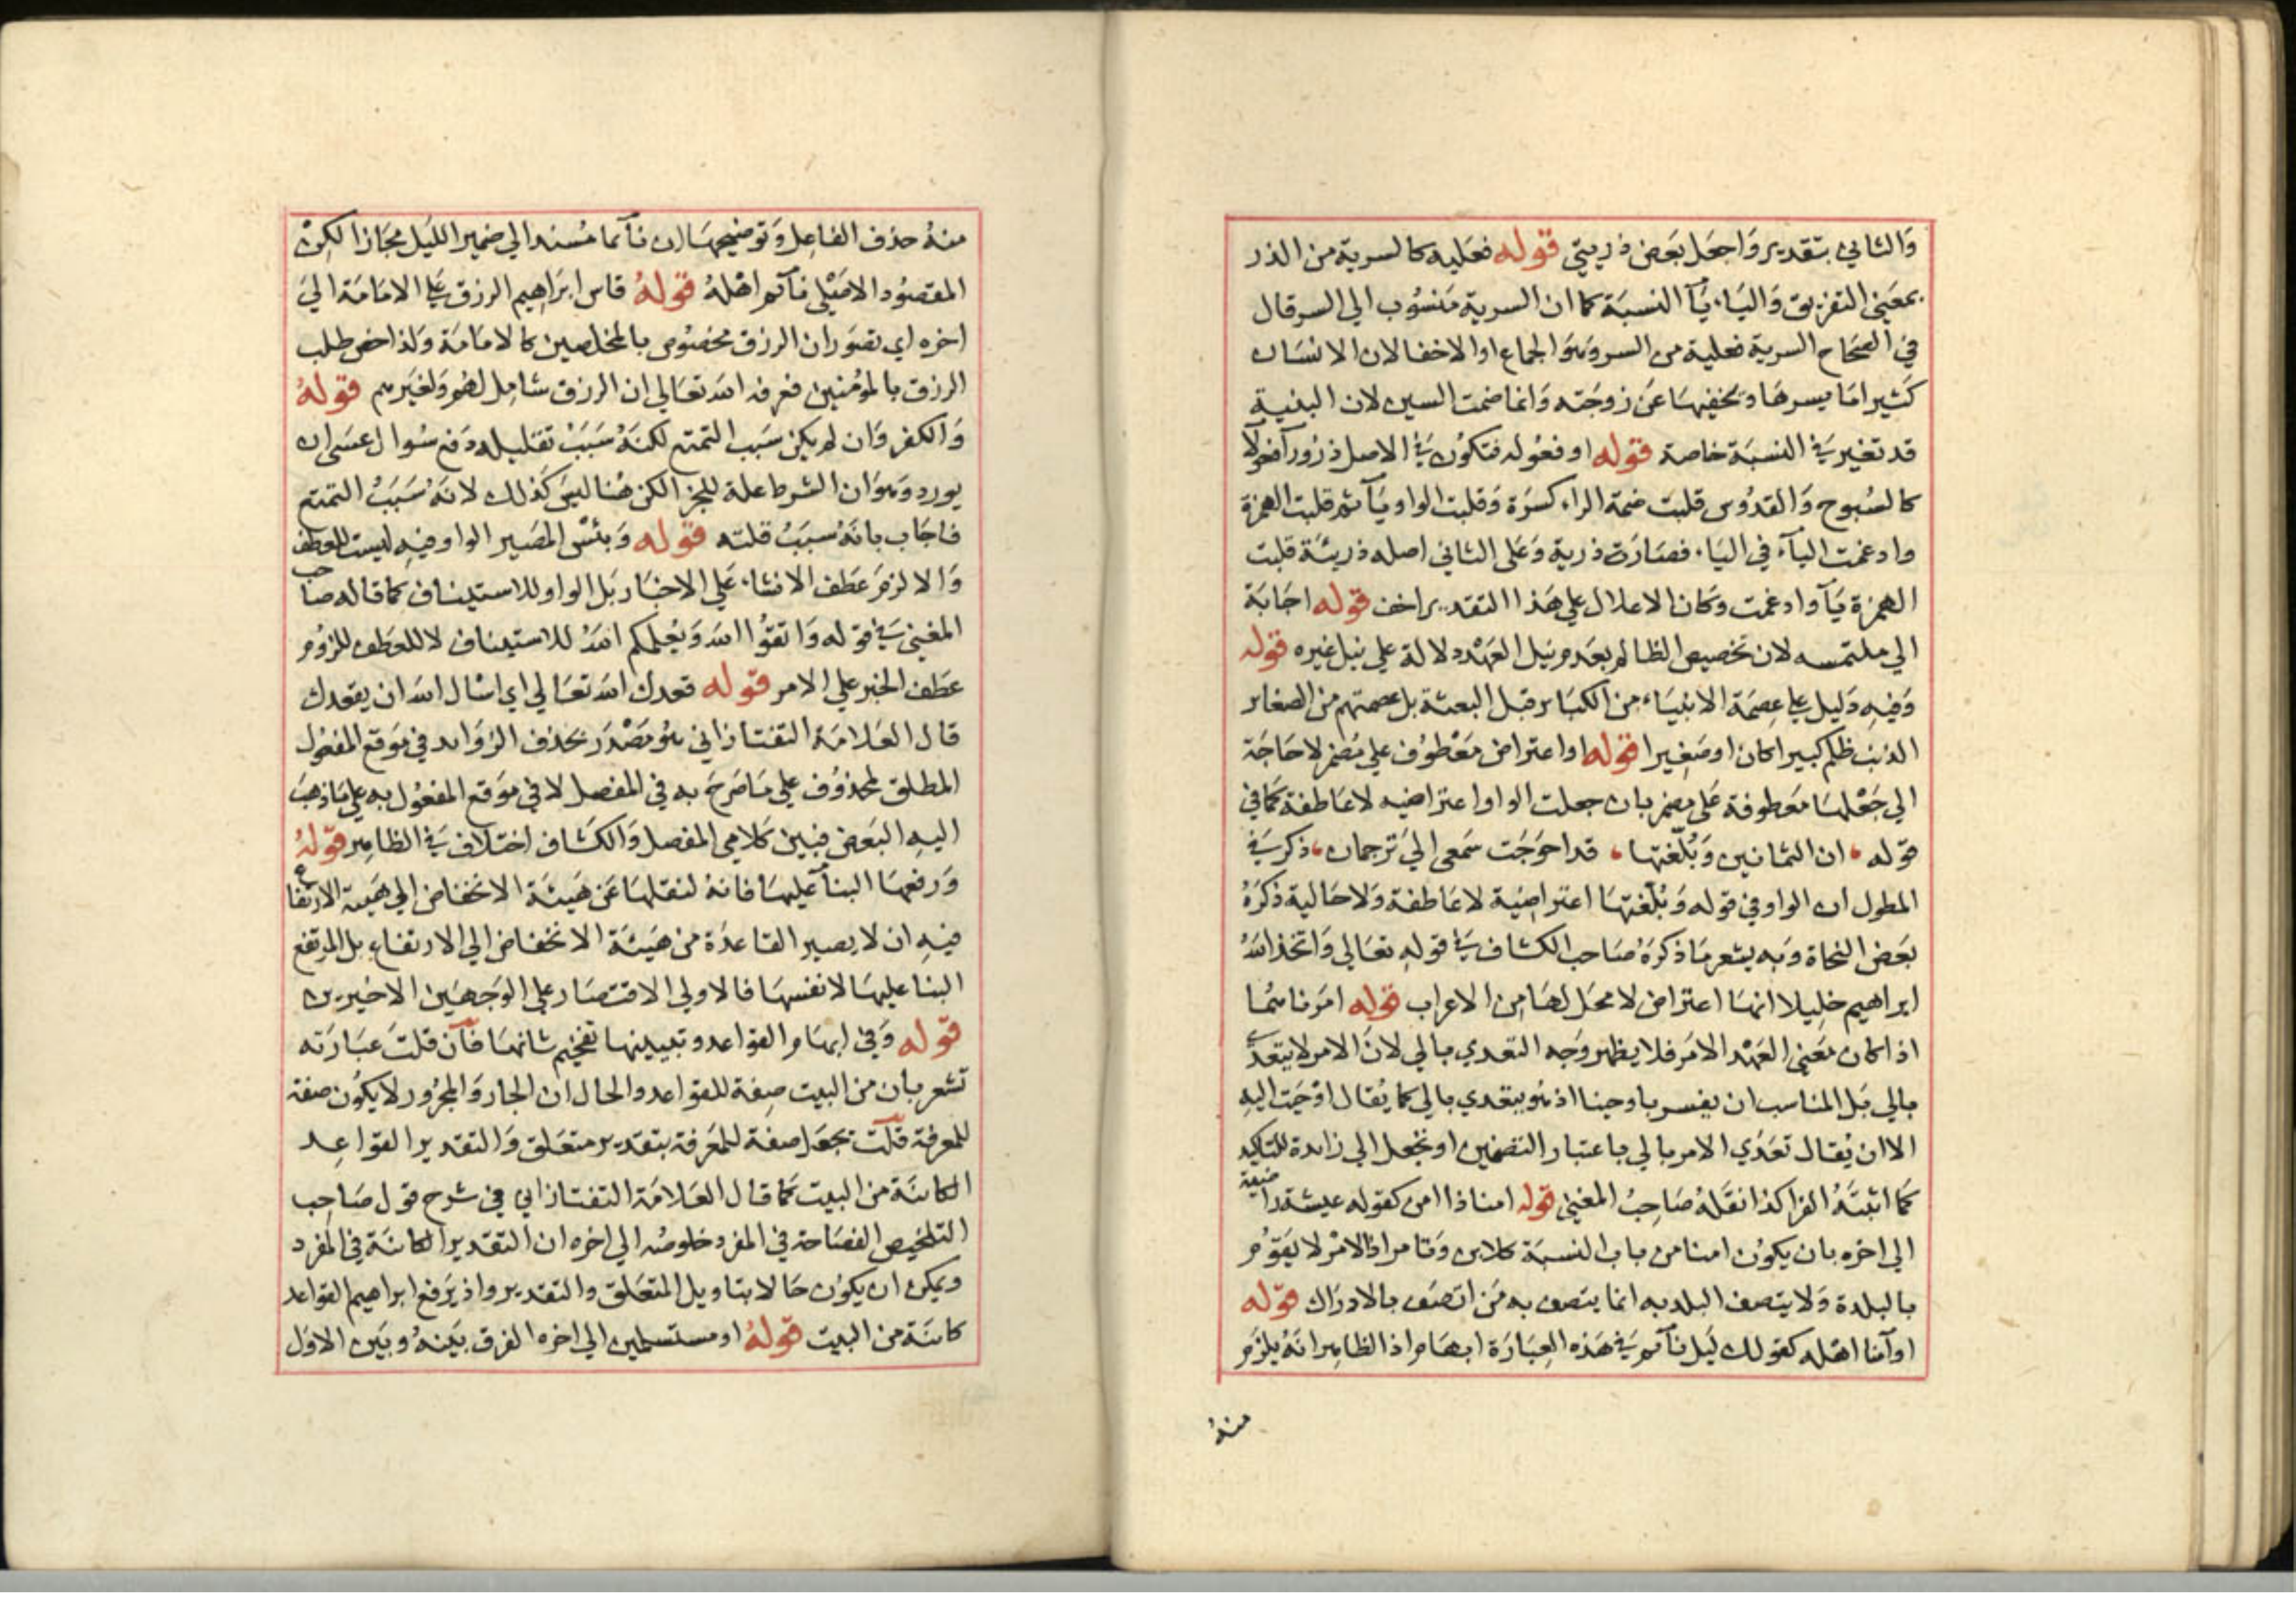 والثاني بتقدير واجعل بعض ذريتي قوله فعليه كالسرية من الذر
بمعني التفريق والياء يآ النسبة كما ان السرية منسوب الي السر قال
في الصحاح السرية فعلية من السر وهو الجماع او الاخفا لان الانسان
كثيرا ما يسرها ويخفيها عن زوجته وانما ضمت السين لان البنية
قد تغير في النسبة خاصة قوله او فعوله فتكون في الاصل ذرور آفعولآ
كالسبوح والقدوس قلبت ضمة الراء كسرة وقلبت الواو يآ ثم قلبت الهمزة
وادغمت اليآء في الياء فصارت ذرية وعلى الثاني اصله ذريئة قلبت
الهمزة يآ وادغمت وكان الاعلال علي هذا التقدير اخف قوله اجابة
الي ملتمسه لان تخصيص الظالم بعدم نيل العهد دلالة علي نيل غيره قوله
وفيه دليل علي عصمة الانبياء من الكبائر قبل البعثة بل عصمتهم من الصغاير
الذنب ظلم كبيرا كان او صغيرا قوله او اعتراض معطوف علي مضمر لا حاجة
الي جعلها معطوفة على مضمر بان جعلت الواو اعتراضيه لا عاطفة كما في
قوله ، ان الثمانين وبلغتها ، قد احوجت سمعي الي ترجمان ، ذكر في
المطول ان الواو في قوله وبلغتها اعتراضية لا عاطفة ولا حالية ذكره
بعض النحاة وبه يشعر ما ذكره صاحب الكشاف في قوله تعالي واتخذ الله
ابراهيم خليلا انها اعتراض لا محل لها من الاعراب قوله امرناهما
اذا كان معني العهد الامر فلا يظهر وجه التعدي بالي لان الامر لا يتعدي
بالي بل المناسب ان يفسر باوحينا اذ هو يتعدي بالي كما يقال اوحيت اليه
الا ان يقال تعدي الامر بالي باعتبار التضمين او نجعل الي زائدة للتاكيد
كما اثبته الفرا كذا نقله صاحب المغني قوله امنا ذا امن كقوله عيشة راضية
الي اخره بان يكون امنا من باب النسبة كلابن وتامر اذ الامن لا يقوم
بالبلدة ولا يتصف البلد به انما يتصف به من اتصف بالادراك قوله
او آمنا اهله كقولك ليل نآئم في هذه العبارة ابهام اذ الظاهر انه يلزم
منه
منه حذف الفاعل وتوضيحها ان نآئما مسند الي ضمير الليل مجازا لكن
المقصود الاصلي نآئم اهله قوله قاس ابراهيم الرزق علي الامامة الي
اخره اي تصور ان الرزق مخصوص بالمخلصين كالامامة ولذا خص طلب
الرزق بالمؤمنين فعرفه الله تعالي ان الرزق شامل لهم ولغيرهم قوله
والكفر وان لم يكن سبب التمتع لكنه سبب تقليله دفع سوال عسى ان
يورد وهو ان الشرط علة للجزا لكن هنا ليس كذلك لانه سبب التمتع
فاجاب بانه سبب قلته قوله وبئس المصير الواو فيه ليست للعطف
والا لزم عطف الانشاء علي الاخبار بل الواو للاستيناف كما قاله صاحب
المغني في قوله واتقوا الله ويعلمكم الله للاستيناف لا للعطف للزوم
عطف الخبر علي الامر قوله قعدك الله تعالي اي اسال الله ان يقعدك
قال العلامة التفتازاني هو مصدر بحذف الزوايد في موقع المفعول
المطلق لمحذوف علي ما صرح به في المفصل لا في موقع المفعول به علي ما ذهب
اليه البعض فبين كلامي المفصل والكشاف اختلاف في الظاهر قوله
ورفعها البنآ عليها فانه لنقلها عن هيئة الانخفاض الي هيئة الارتفاع
فيه ان لا يصير القاعدة من هيئة الانخفاض الي الارتفاع بل المرتفع
البنا عليها لا نفسها فالاولي الاقتصار علي الوجهين الاخيرين
قوله وفي ابهام القواعد وتبيينها تفخيم شانها فآن قلت عبارته
تشعر بان من البيت صفة للقواعد والحال ان الجار والمجرور لا يكون صفة
للمعرفة قلت نجعل صفة للمعرفة بتقدير متعلق والتقدير القواعد
الكائنة من البيت كما قال العلامة التفتازاني في شرح قول صاحب
التلخيص الفصاحة في المفرد خلوصه الي اخره ان التقدير الكائنة في المفرد
ويمكن ان يكون حالا بتاويل المتعلق والتقدير واذ يرفع ابراهيم القواعد
كائنة من البيت قوله او مستسلمين الي اخره الفرق بينه وبين الاول